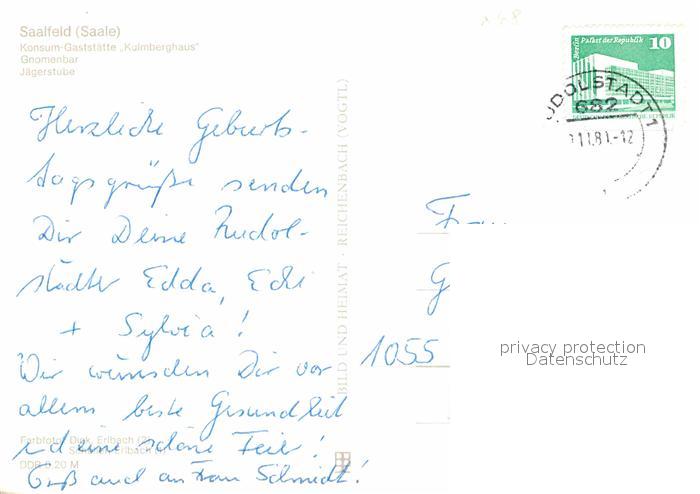 Saalfeld (Saale)
Konsum-Gaststätte „Kulmberghaus"
Gnomenbar
Jägerstube
Herzliche Geburts-
tagsgrüße senden
Dir Deine Rudol-
städter Edda, Edi
+ Sylvia!
Wir wünschen Dir vor
allem beste Gesundheit
und eine schöne Feier!
Gruß auch an Frau Schmidt!
Farbfoto: Dick, Erlbach
Erlbach
DDR 0.20 M
BILD UND HEIMAT · REICHENBACH (VOGTL)
Berlin Palast der Republik 10
UDOLSTADT 1
682
11.81.-12
F
G
1055
privacy protection
Datenschutz